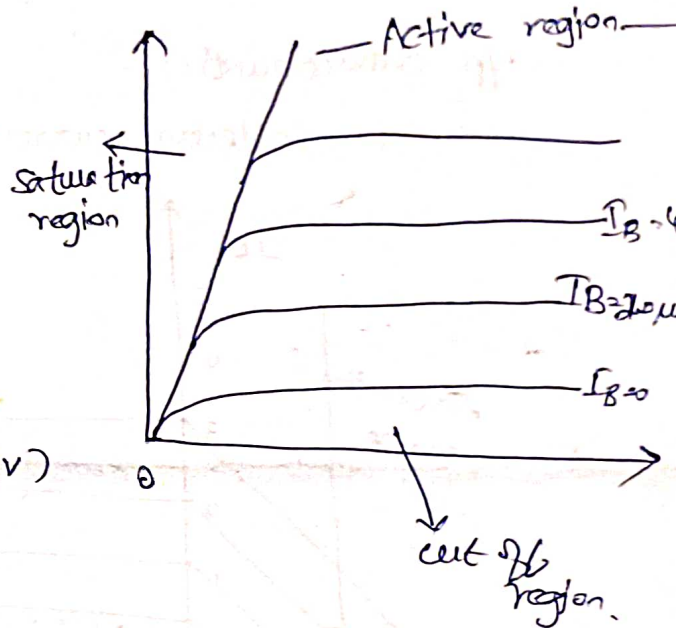 Active region
saturation
region
I_B = 4
I_B=20μ
I_B=0
V)
0
cut off
region.